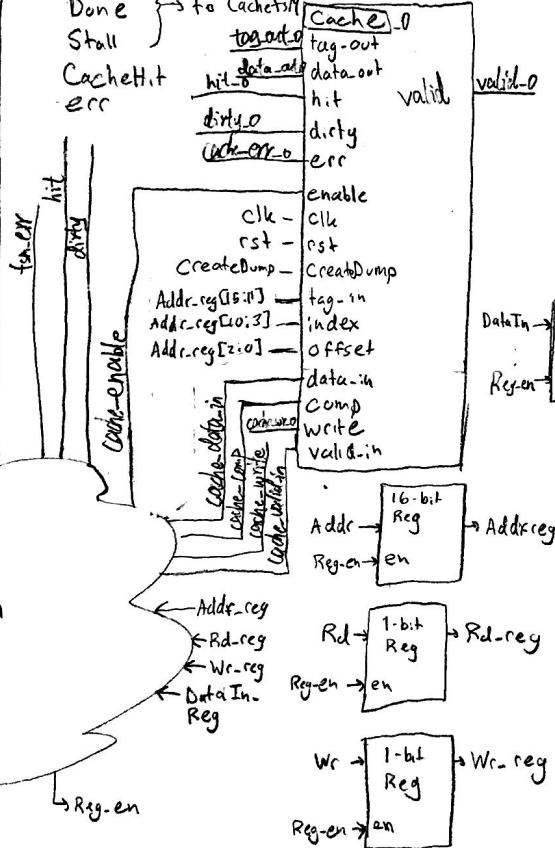 Done
Stall
CacheHit
err
to CacheFSM
Cache_0
tag_out_0
tag-out
data_out
hit_0
hit
valid
valid_0
dirty_0
dirty
cache_err_0
err
enable
clk
clk
rst
rst
CreateDump
CreateDump
Addr_reg[15:11]
tag-in
Addr_reg[10:3]
index
Addr_reg[2:0]
offset
data_in
comp
write
valid_in
fsm_err
hit
dirty
cache_enable
cache_data_in
cache_comp
cache_write
cache_valid_in
DataIn
Reg-en
16-bit
Reg
Addr
Addrreg
Reg-en
en
Addr_reg
Rd-reg
Wr_reg
DataIn_
Reg
1-bit
Reg
Rd
Rd_reg
Reg-en
en
1-bit
Reg
Wr
Wr_reg
Reg-en
en
Reg-en